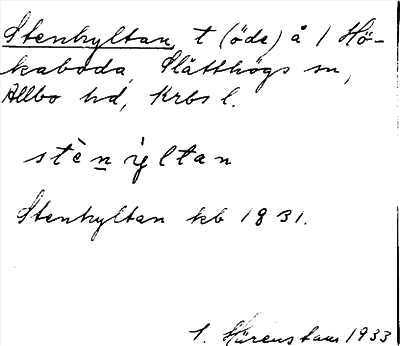 Stenhyltan, t (öde) å 1 Hö-
kaboda, Slätthögs sn,
Allbo hd, Krbs l.
stèn ìyltan
Stenhyltan kb 1831.
1. Härenstam 1933